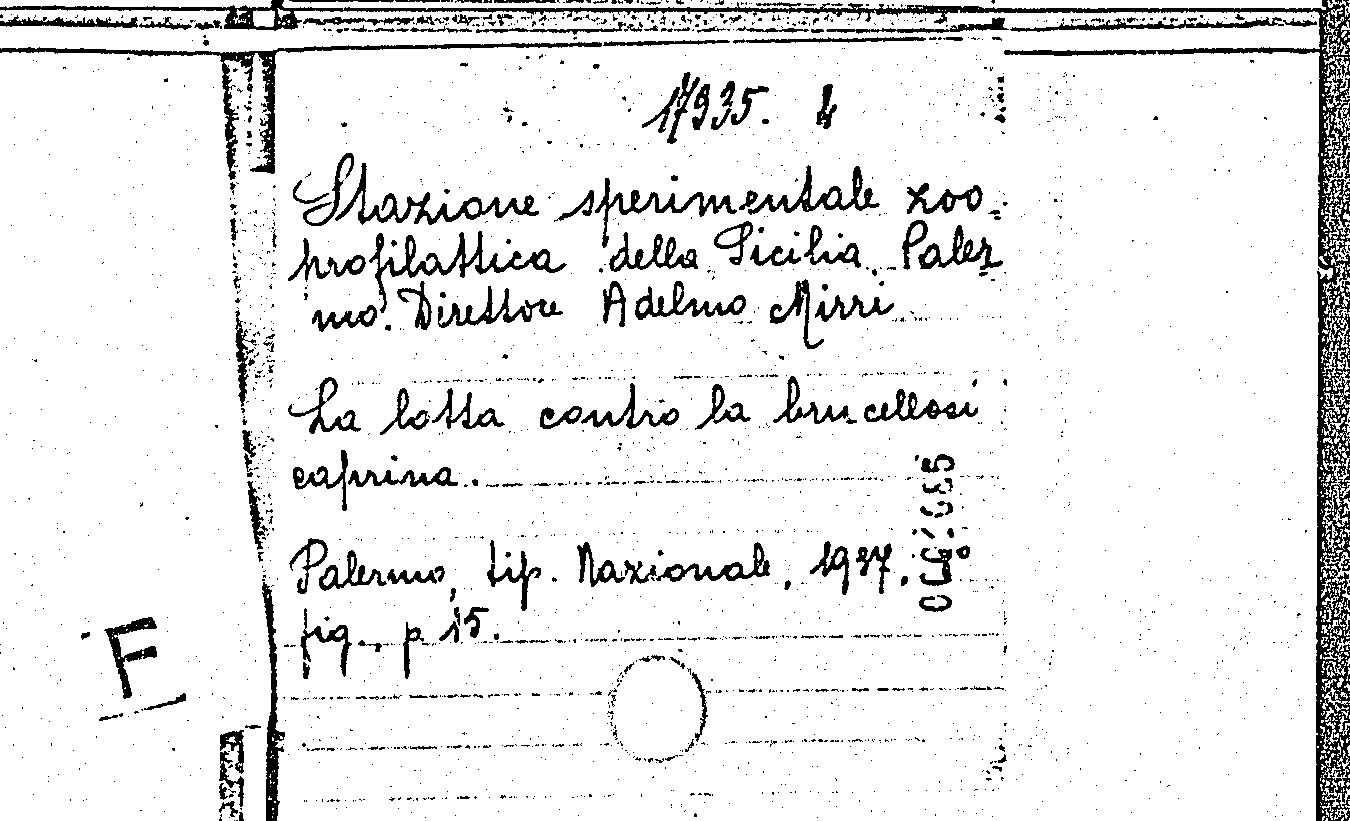 17935. 4
Stazione sperimentale zoo-
profilattica della Sicilia. Paler-
mo. Direttore Adelmo Mirri
La lotta contro la brucellosi
caprina.
Palermo, tip. Nazionale, 1937, 8°
fig. p 15.
F